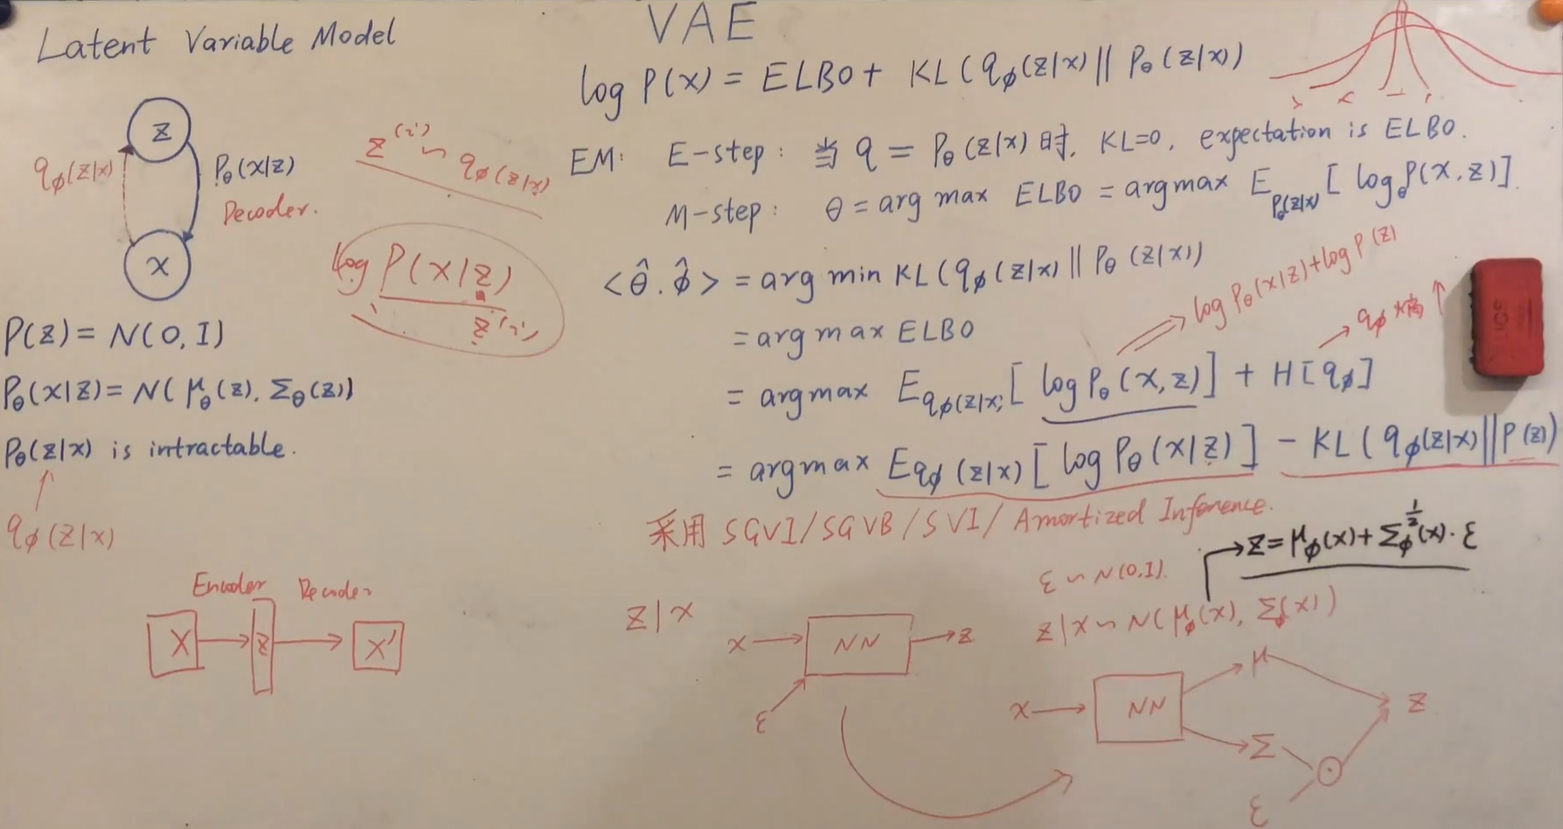 Latent Variable Model
z
qϕ(z|x)
Pθ(x|z)
Decoder.
x
P(z) = N(0, I)
Pθ(x|z) = N(μθ(z), Σθ(z))
Pθ(z|x) is intractable.
qϕ(z|x)
Encoder Decoder
X → z → X'
z⁽ⁱ⁾ ~ qϕ(z|x)
log P(x|z)
z⁽ⁱ⁾
VAE
log P(x) = ELBO + KL(qϕ(z|x) || Pθ(z|x))
EM: E-step: 当 q = Pθ(z|x) 时, KL=0, expectation is ELBO.
M-step: θ = arg max ELBO = argmax E_Pθ(z|x) [log Pθ(x,z)].
<θ̂.ϕ̂> = arg min KL(qϕ(z|x) || Pθ(z|x))
= argmax ELBO
log Pθ(x|z)+log P(z)
qϕ 熵 ↑
= argmax E_qϕ(z|x) [log Pθ(x,z)] + H[qϕ]
= argmax E_qϕ(z|x) [log Pθ(x|z)] - KL(qϕ(z|x)||P(z))
采用 SGVI/SGVB/SVI/Amortized Inference.
→ z = μϕ(x) + Σϕ^½(x)·ε
ε ~ N(0,I).
z|x ~ N(μϕ(x), Σϕ(x))
z|x
x → NN → z
ε
x → NN
μ
Σ
z
ε